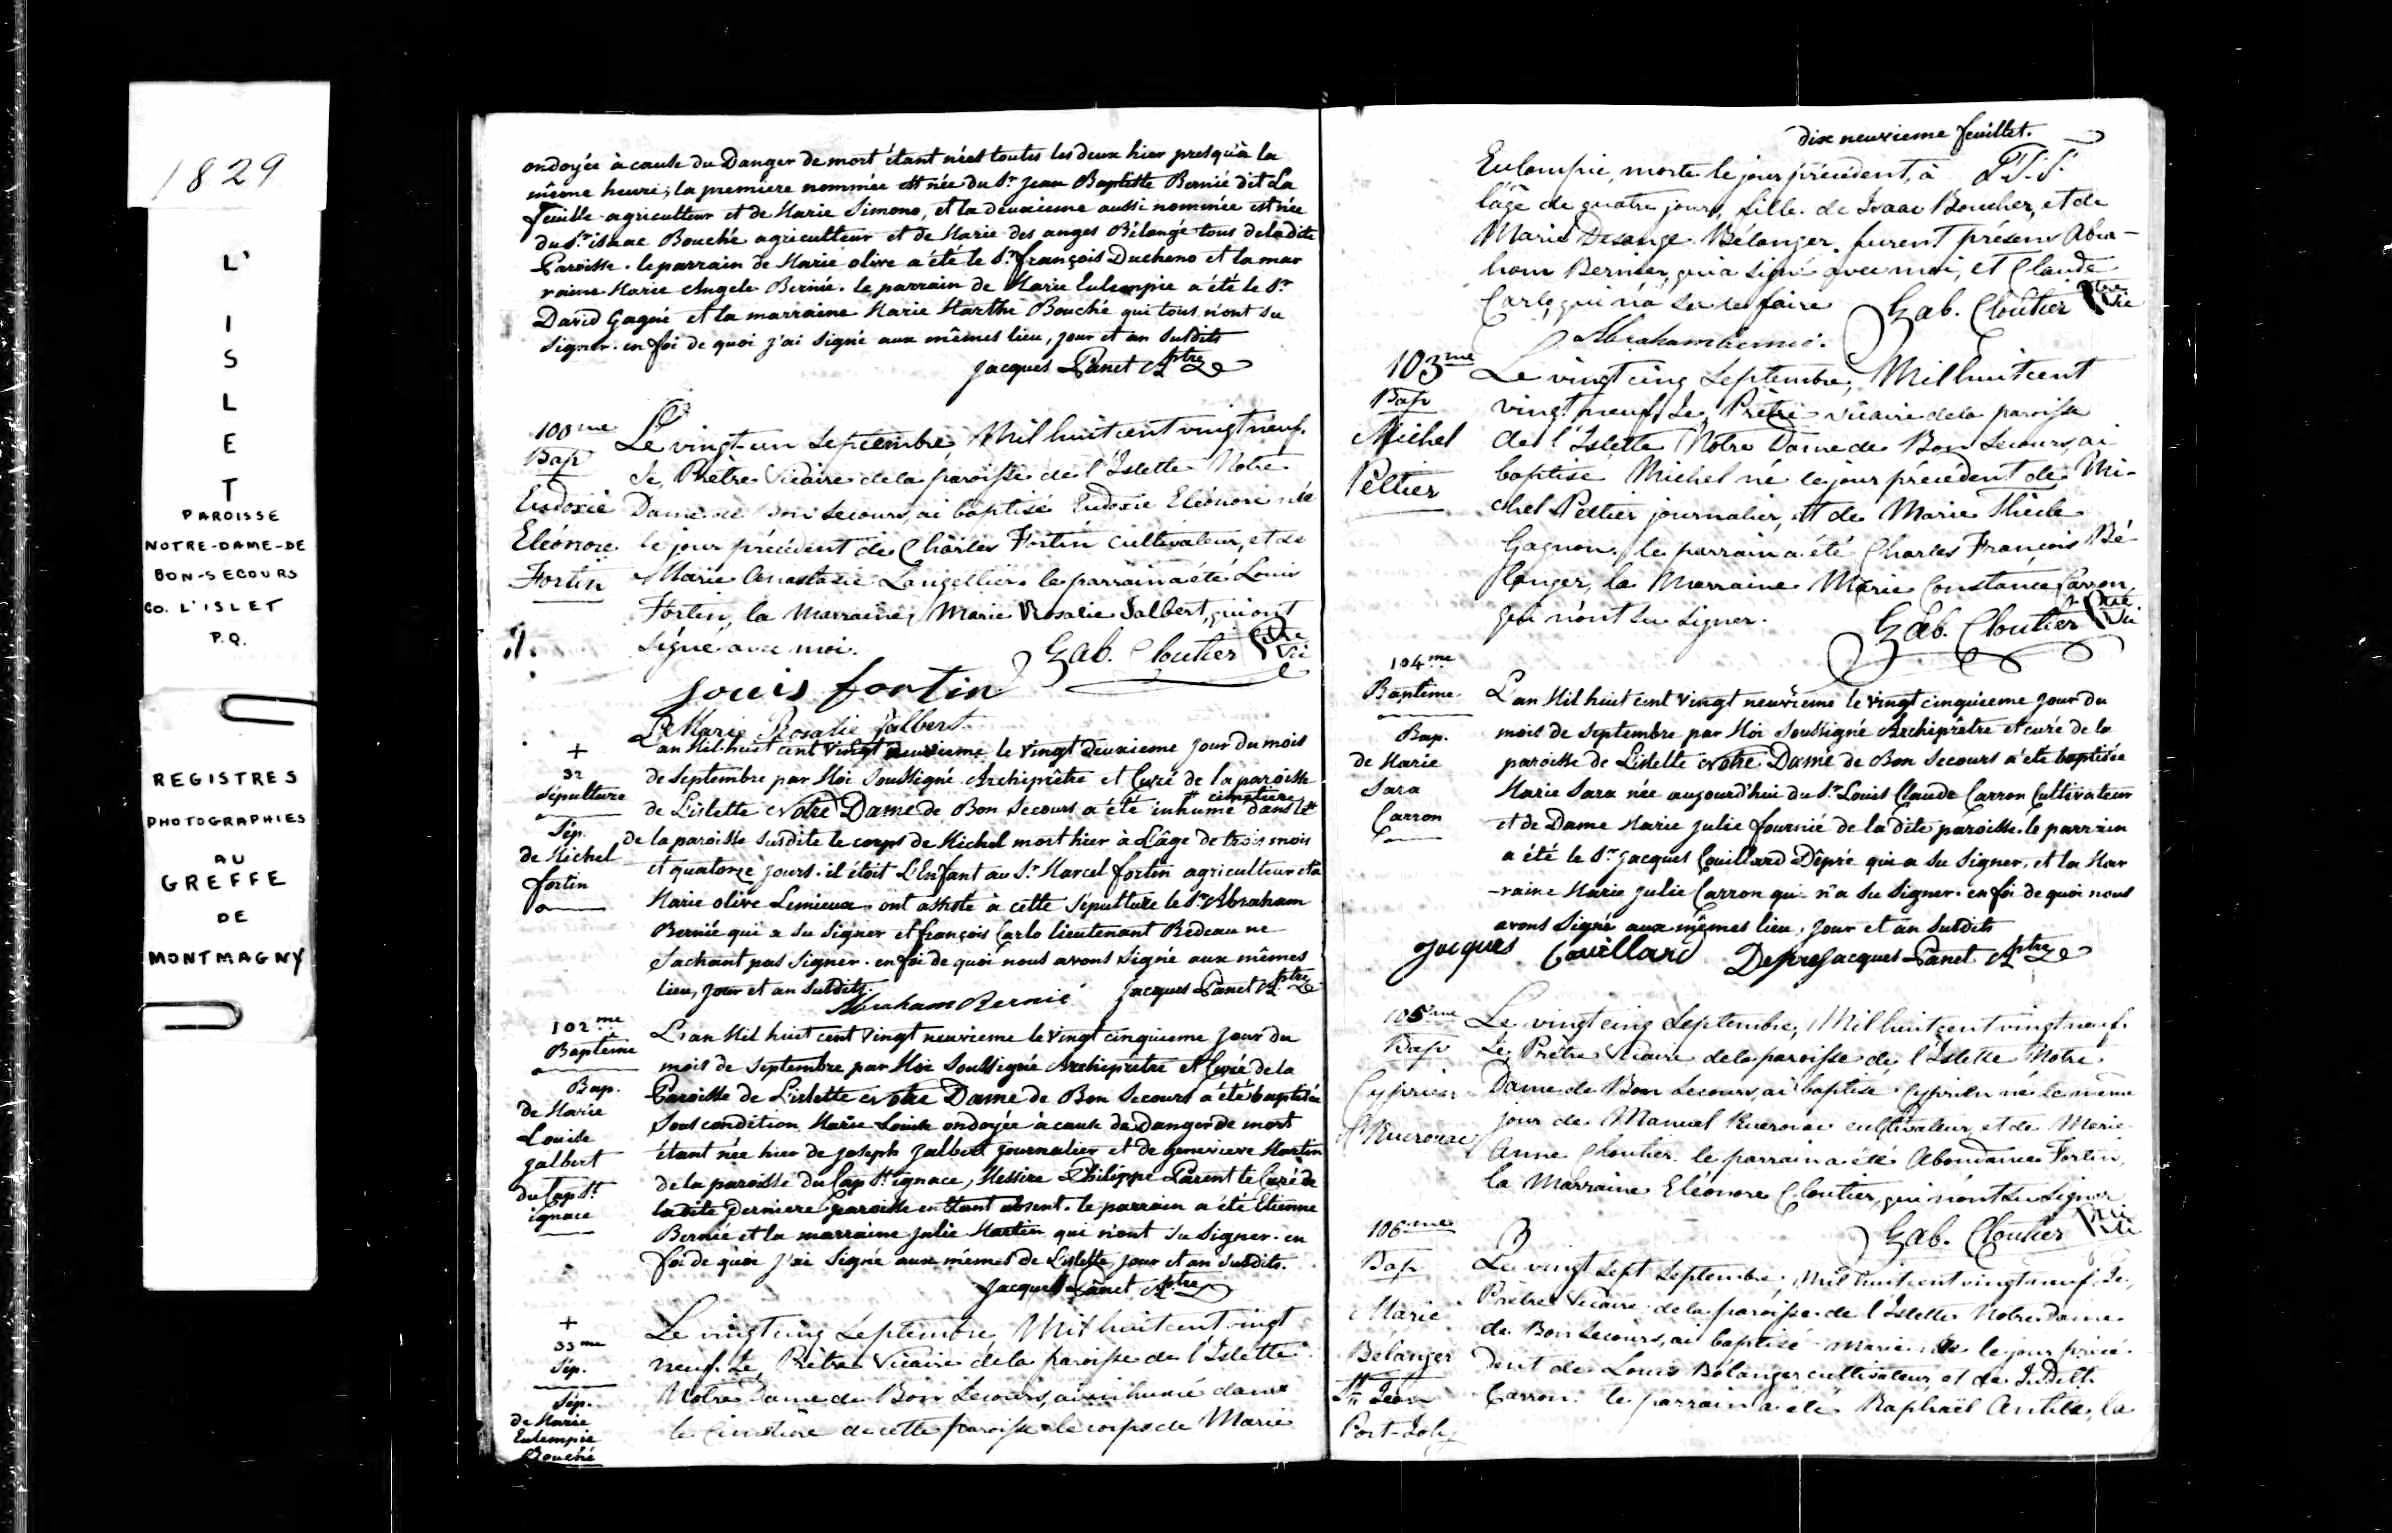 1829
L'
I
S
L
E
T
PAROISSE
NOTRE-DAME-DE
BON-SECOURS
CO. L'ISLET
P.Q.
REGISTRES
PHOTOGRAPHIES
AU
GREFFE
DE
MONTMAGNY
ondoyée à cause du Danger de mort étant néest toutes les deux hier presqu'à la
même heure; la premiere nommée est née du Sr. Jean Baptiste Bernié dit La
feuille agriculteur et de Marie Simono, et la deuxieme aussi nommée est née
du Sr. isaac Bouché agriculteur et de Marie des anges Bélangé tous de la dite
Paroisse. le parrain de Marie olive a été le Sr. françois Ducheno et la mar
raine Marie Angele Bernié. le parrain de Marie Eulempie a été le Sr.
David Gagné et la marraine Marie Marthe Bouché qui tous n'ont su
signer. en foi de quoi j'ai signé aux mêmes lieu, jour et an susdits
Jacques Panet Ptre
100me
Bap
Eudoxie
Eléonore
Fortin
Le vingt-un Septembre, Mil huit cent vingt neuf.
Je, Prêtre Vicaire de la paroisse de l'Islette Notre
Dame de Bon Secours, ai baptisé Eudoxie Eléonore née
le jour précédent de Charles Fortin cultivateur, et de
Marie Anastasie Langellier. le parrain a été Louis
Fortin, la Marraine, Marie Rosalie Jalbert, qui ont
signé avec moi.
Gab. Cloutier Ptre Vic
Louis fortin
Marie Rosalie Jalbert
+
32
Sépulture
Sép.
de Michel
fortin
L'an Mil huit cent vingt neuvieme le vingt deuxieme jour du mois
de Septembre par Moi Soussigné Archiprêtre et Curé de la paroisse
de L'islette Notre Dame de Bon Secours a été inhumé dans le cimetiere
de la paroisse susdite le corps de Michel mort hier à L'âge de trois mois
et quatorze jours. il étoit L'Enfant au Sr. Marcel fortin agriculteur et à
Marie olive Lemieux. ont assisté à cette sépulture le Sr. Abraham
Bernié qui a su signer et françois Carlo lieutenant Bedeau ne
sachant pas signer. en foi de quoi nous avons signé aux mêmes
lieu, jour et an susdits.
Abraham Bernié
Jacques Panet Ptre
102me
Baptême
Bap.
de Marie
Louise
Jalbert
du Cap St.
ignace
L'an Mil huit cent vingt neuvieme le vingt cinquieme jour du
mois de Septembre par Moi Soussigné Archiprêtre et Curé de la
Paroisse de L'islette Notre Dame de Bon Secours a été baptisée
sous condition Marie Louise ondoyée à cause du Danger de mort
étant née hier de Joseph Jalbert journalier et de genevieve Martin
de la paroisse du Cap St. ignace, Messire Philippe Parent le Curé de
ladite derniere paroisse en étant absent. le parrain a été Etienne
Bernié et la marraine julie Martin qui n'ont su signer. en
foi de quoi j'ai signé aux mêmes de L'islette, jour et an susdits.
Jacques Panet Ptre
+
33me
Sép.
Sép.
de Marie
Eulempie
Bouché
Le vingt cinq Septembre, Mil huit cent vingt
neuf. Je, Prêtre Vicaire de la paroisse de l'Islette
Notre Dame de Bon Secours, ai inhumé dans
le Cimetière de cette paroisse le corps de Marie
dix neuvieme feuillet.
Eulempie, morte le jour précédent, à
l'âge de quatre jours, fille de Isaac Boucher, et de
Marie Desange Bélanger. furent présens Abra-
ham Bernier, qui a signé avec moi, et Claude
Carlo, qui n'a su le faire
Gab. Cloutier Ptre Vic
Abraham bernié.
103me
Bap
Michel
Peltier
Le vingt cinq Septembre, Mil huit cent
vingt neuf, Je, Prêtre Vicaire de la paroisse
de l'Islette Notre Dame de Bon Secours, ai
baptisé Michel né le jour précédent de Mi-
chel Peltier journalier, et de Marie Thècle
Gagnon. le parrain a été Charles François Bé-
langer, la Marraine Marie Constance Carron,
qui n'ont su signer.
Gab. Cloutier Ptre Vic
104me
Baptême
Bap.
de Marie
Sara
Carron
L'an Mil huit cent vingt neuvieme le vingt cinquieme jour du
mois de Septembre par Moi Soussigné Archiprêtre et curé de la
paroisse de L'islette Notre Dame de Bon Secours a été baptisée
Marie Sara née aujourd'hui du Sr. Louis Claude Carron Cultivateur
et de Dame Marie Julie fournié de la dite paroisse. le parrain
a été le Sr. Jacques Couillard Dêpré qui a su signer, et la Mar
-raine Marie Julie Carron qui n'a su signer. en foi de quoi nous
avons signé aux mêmes lieu, jour et an susdits
Jacques Couillard Depres
Jacques Panet Ptre
105me
Bap
Cyprien
Kuerouac
Le vingt cinq Septembre, Mil huit cent vingt neuf.
Je, Prêtre Vicaire de la paroisse de l'Islette Notre
Dame de Bon Secours, ai baptisé Cyprien né le même
jour de Manuel Kuerouac cultivateur, et de Marie
Anne Cloutier. le parrain a été Abondance Fortin,
la Marraine Eléonore Cloutier, qui n'ont su signer
Gab. Cloutier Ptre Vic
106me
Bap
Marie
Bélanger
St Jean
Port-Joly
Le vingt sept Septembre, Mil huit cent vingt neuf, Je,
Prêtre Vicaire de la paroisse de l'Islette Notre Dame
de Bon Secours, ai baptisé Marie née le jour précé-
dent de Louis Bélanger cultivateur, et de Judith
Carron. le parrain a été Raphaël Antille, la